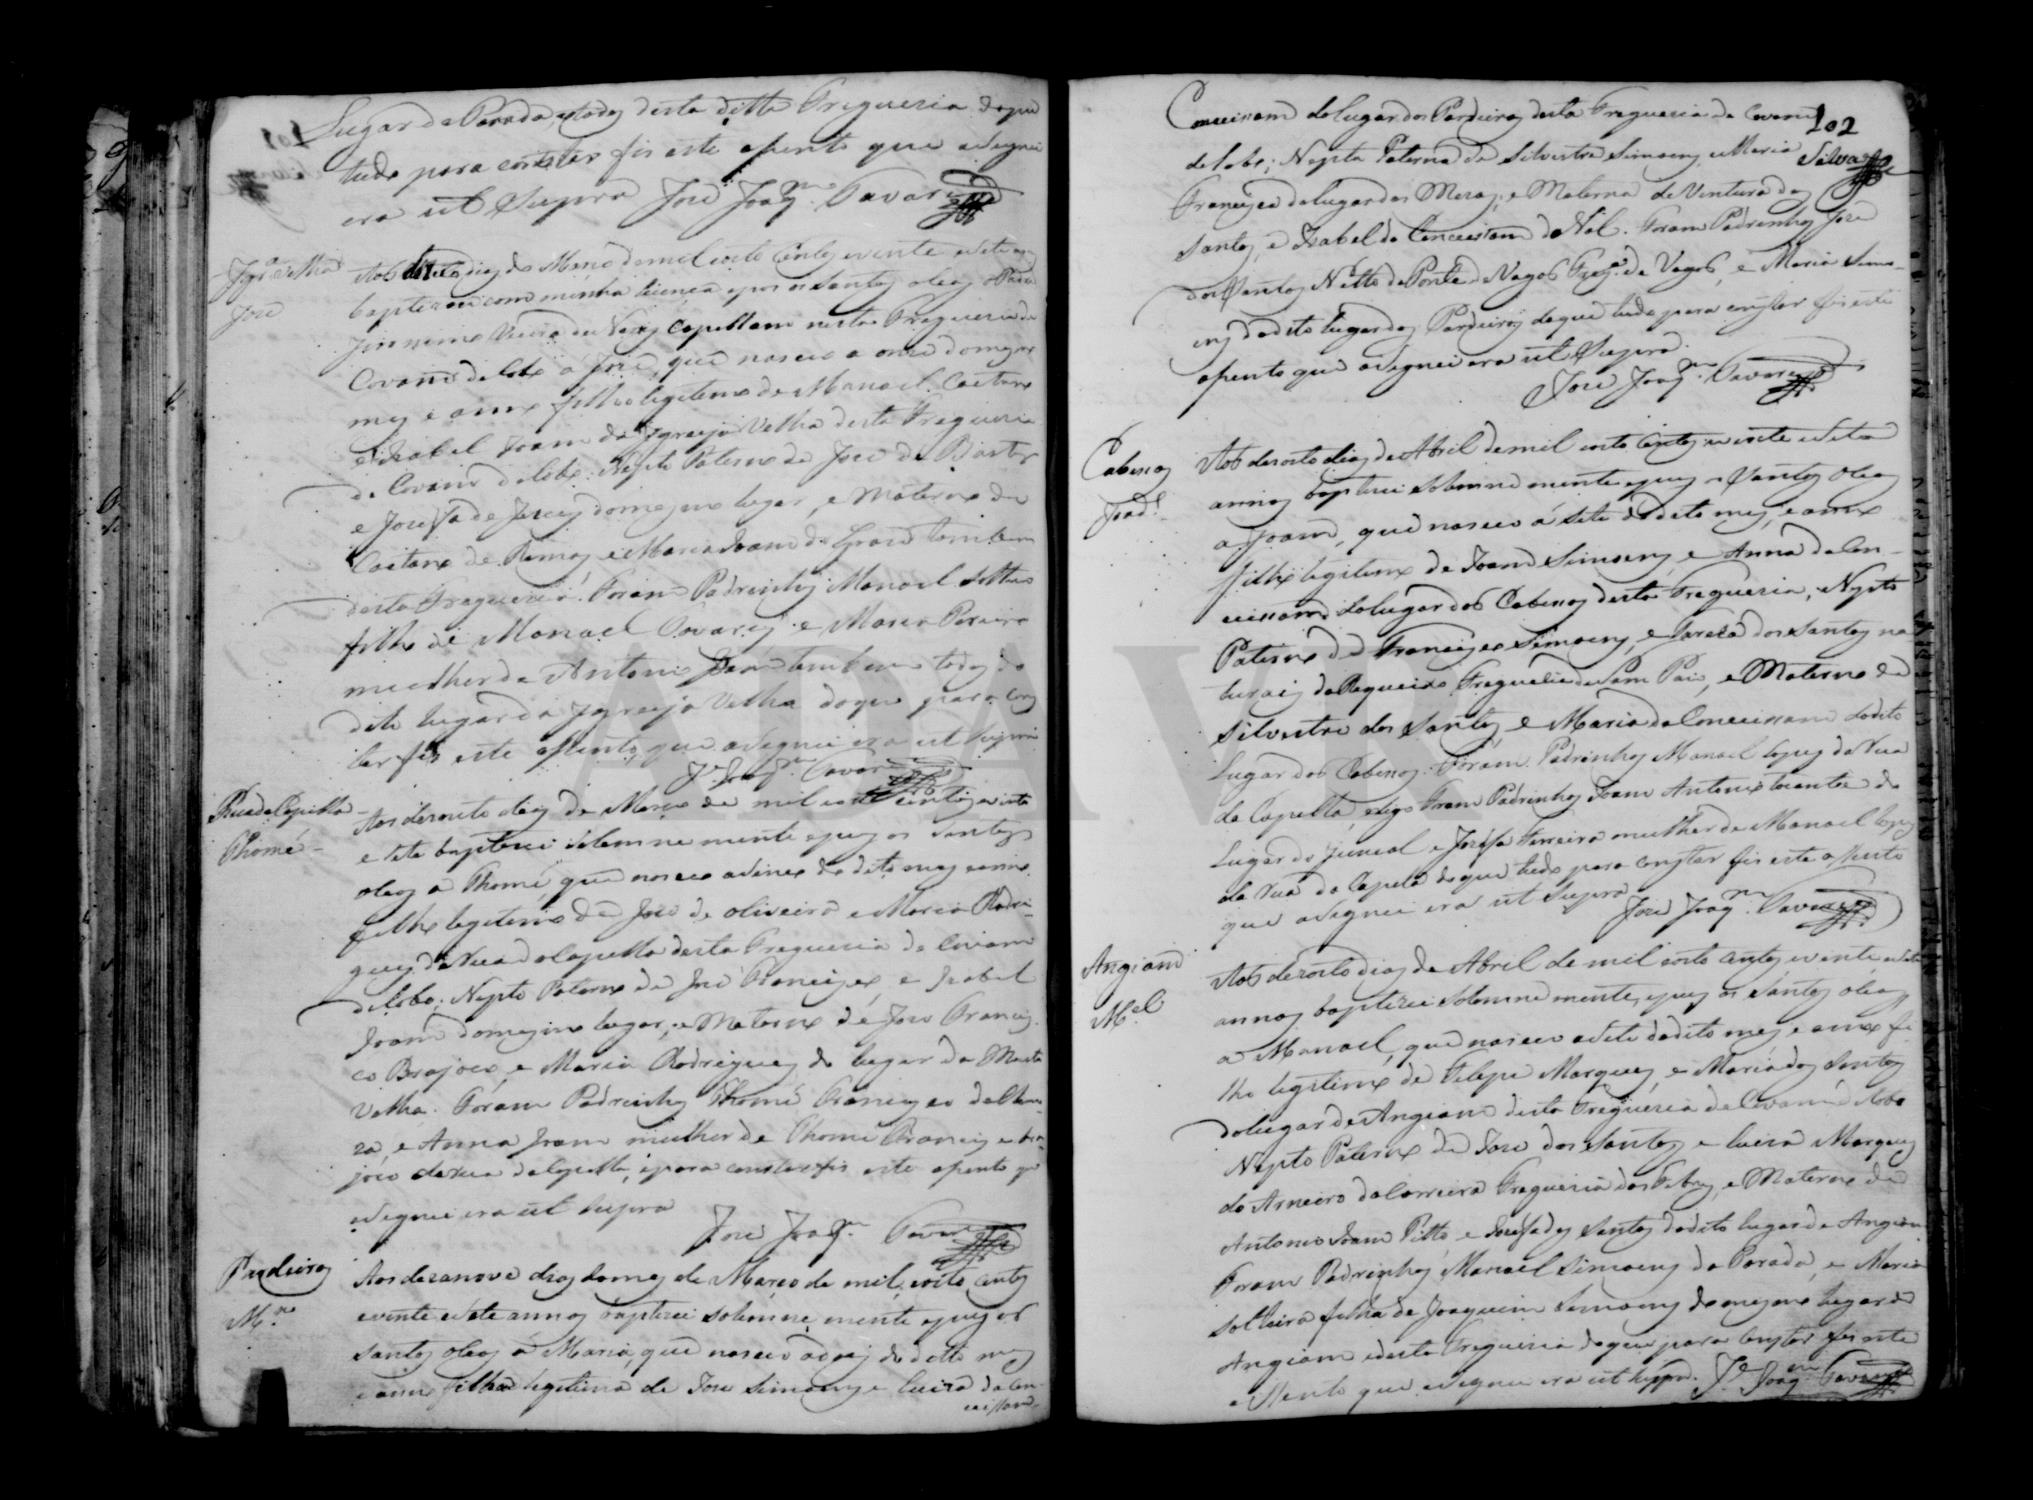 Lugar da Parada, e todos desta ditta Freguezia doque
tudo para constar fis este asento que asignei
era ut Supra Joze Joaqm Tavares
Igra Velha
Joze
Aos dias de Março de mil e oito Centos e vinte e sete an
baptizou com minha licença e pos os santos oleos o Padre
Jeronimo Vieira das Neves Capellam nesta Freguezia de
Covam do Lobo a Joze, que nasceo a onze do mesmo
mes e anno filho legitimo de Manoel Caetano
e Izabel Joam da Igreija Velha desta Freguezia
de Covam do Lobo: Nepto Paterno de Joze de Bastos
e Josefa de Jesus do mesmo lugar, e Materno de
Caetano de Ramos, e Maria Joam de tambem
desta Freguezia. Foram Padrinhos Manoel solteiro
filho de Manoel Tavares e Maria Pereira
mulher de Antonio Joam tambem todos do
dito lugar da Igreija Velha doque para cons
tar fis este asento, que asignei era ut supra
Je Joaqm Tavares
Rua da Capella
Thomé
Aos desouto dias de Março de mil e oito centos e vinte
e sete baptizei solemnemente e pus os Santos
oleos a Thomé, que nasceo a do dito mes e anno
filho legitimo de Joze de oliveira e Maria Rodri-
gues da Rua da Capella desta Freguezia de Covam
do Lobo: Nepto Paterno de Joze Francisco, e Izabel
Joam do mesmo lugar, e Materno de Joze Francis
co Brojoco, e Maria Rodrigues do lugar da
Velha. Foram Padrinhos Thomé Francisco
e Anna Joam mulher de Thomé Francisco
da Rua da Capella, e para constar fis este asento q
asignei era ut supra
Joze Joaqm Tavares
Pardeiros
Ma
Aos dezanove dias do mes de Março de mil e oito centos
e vinte e sete annos baptizei solemnemente e pus os
santos oleos á Maria, que nasceo a do ditto mes
e anno filha legitima de Joze Simoens e Luiza da Con-
ceissam
102
Conceisam do lugar dos Pardeiros desta Freguezia de Covam
do Lobo; Nepta Paterna de Silvestre Simoens e Maria
Silva
Francisca do lugar dos Mesas, e Materna de Ventura dos
Santos, e Izabel da Conceissam de Foram Padrinhos Joze
dos Santos Netto da Ponte de Vagos Fregª de Vagos, e Maria Simo-
ens do dito lugar dos Pardeiros doque tudo para constar fis este
asento que asignei era ut Supra.
Joze Joaqm Tavares
Cabesos
Joaõ
Aos desoito dias de Abril de mil e oito Centos e vinte e sete
annos baptizei solemnemente e pus os Santos Oleos
a Joam, que nasceo á sete do dito mes, e anno
filho legitimo de Joam Simoens, e Anna da Con-
ceissam do lugar dos Cabesos desta Freguezia, Nepto
Paterno de Francisco Simoens, e Tareza dos Santos na
turais da Requeixo Freguezia de Sam Paio, e Materno de
Silvestre dos Santos, e Maria da Conceissam do dito
Lugar dos Cabesos. Foram Padrinhos Manoel Lopes da Rua
da Capella, digo Foram Padrinhos Joam Antonio do
Lugar do Juncal e Josefa Ferreira mulher de Manoel Lopes
da Rua da Capela doque tudo para constar fis este assento
que asignei era ut Supra
Joze Joaqm Tavares
Angiam
Mel
Aos desoito dias de Abril de mil e oito Centos e vinte e sete
annos baptizei solemnemente, e pus os Santos oleos
a Manoel, que nasceo a sete do dito mes, e anno fi-
lho legitimo de Felipe Marques, e Maria dos Santos
do lugar de Angiam desta Freguezia de Covam do Lobo
Nepto Paterno de Joze dos Santos e Luiza Marques
do Arneiro da Freguezia dos Febres, e Materno de
Antonio Joam Pitto, e Josefa dos Santos do dito lugar de Angiam
Foram Padrinhos Manoel Simoens da Parada, e Maria
solteira filha de Joaquim Simoens do mesmo lugar de
Angiam e desta Freguezia doque para Constar fis este
assento que asignei era ut supra. Je Joaqm Tavares